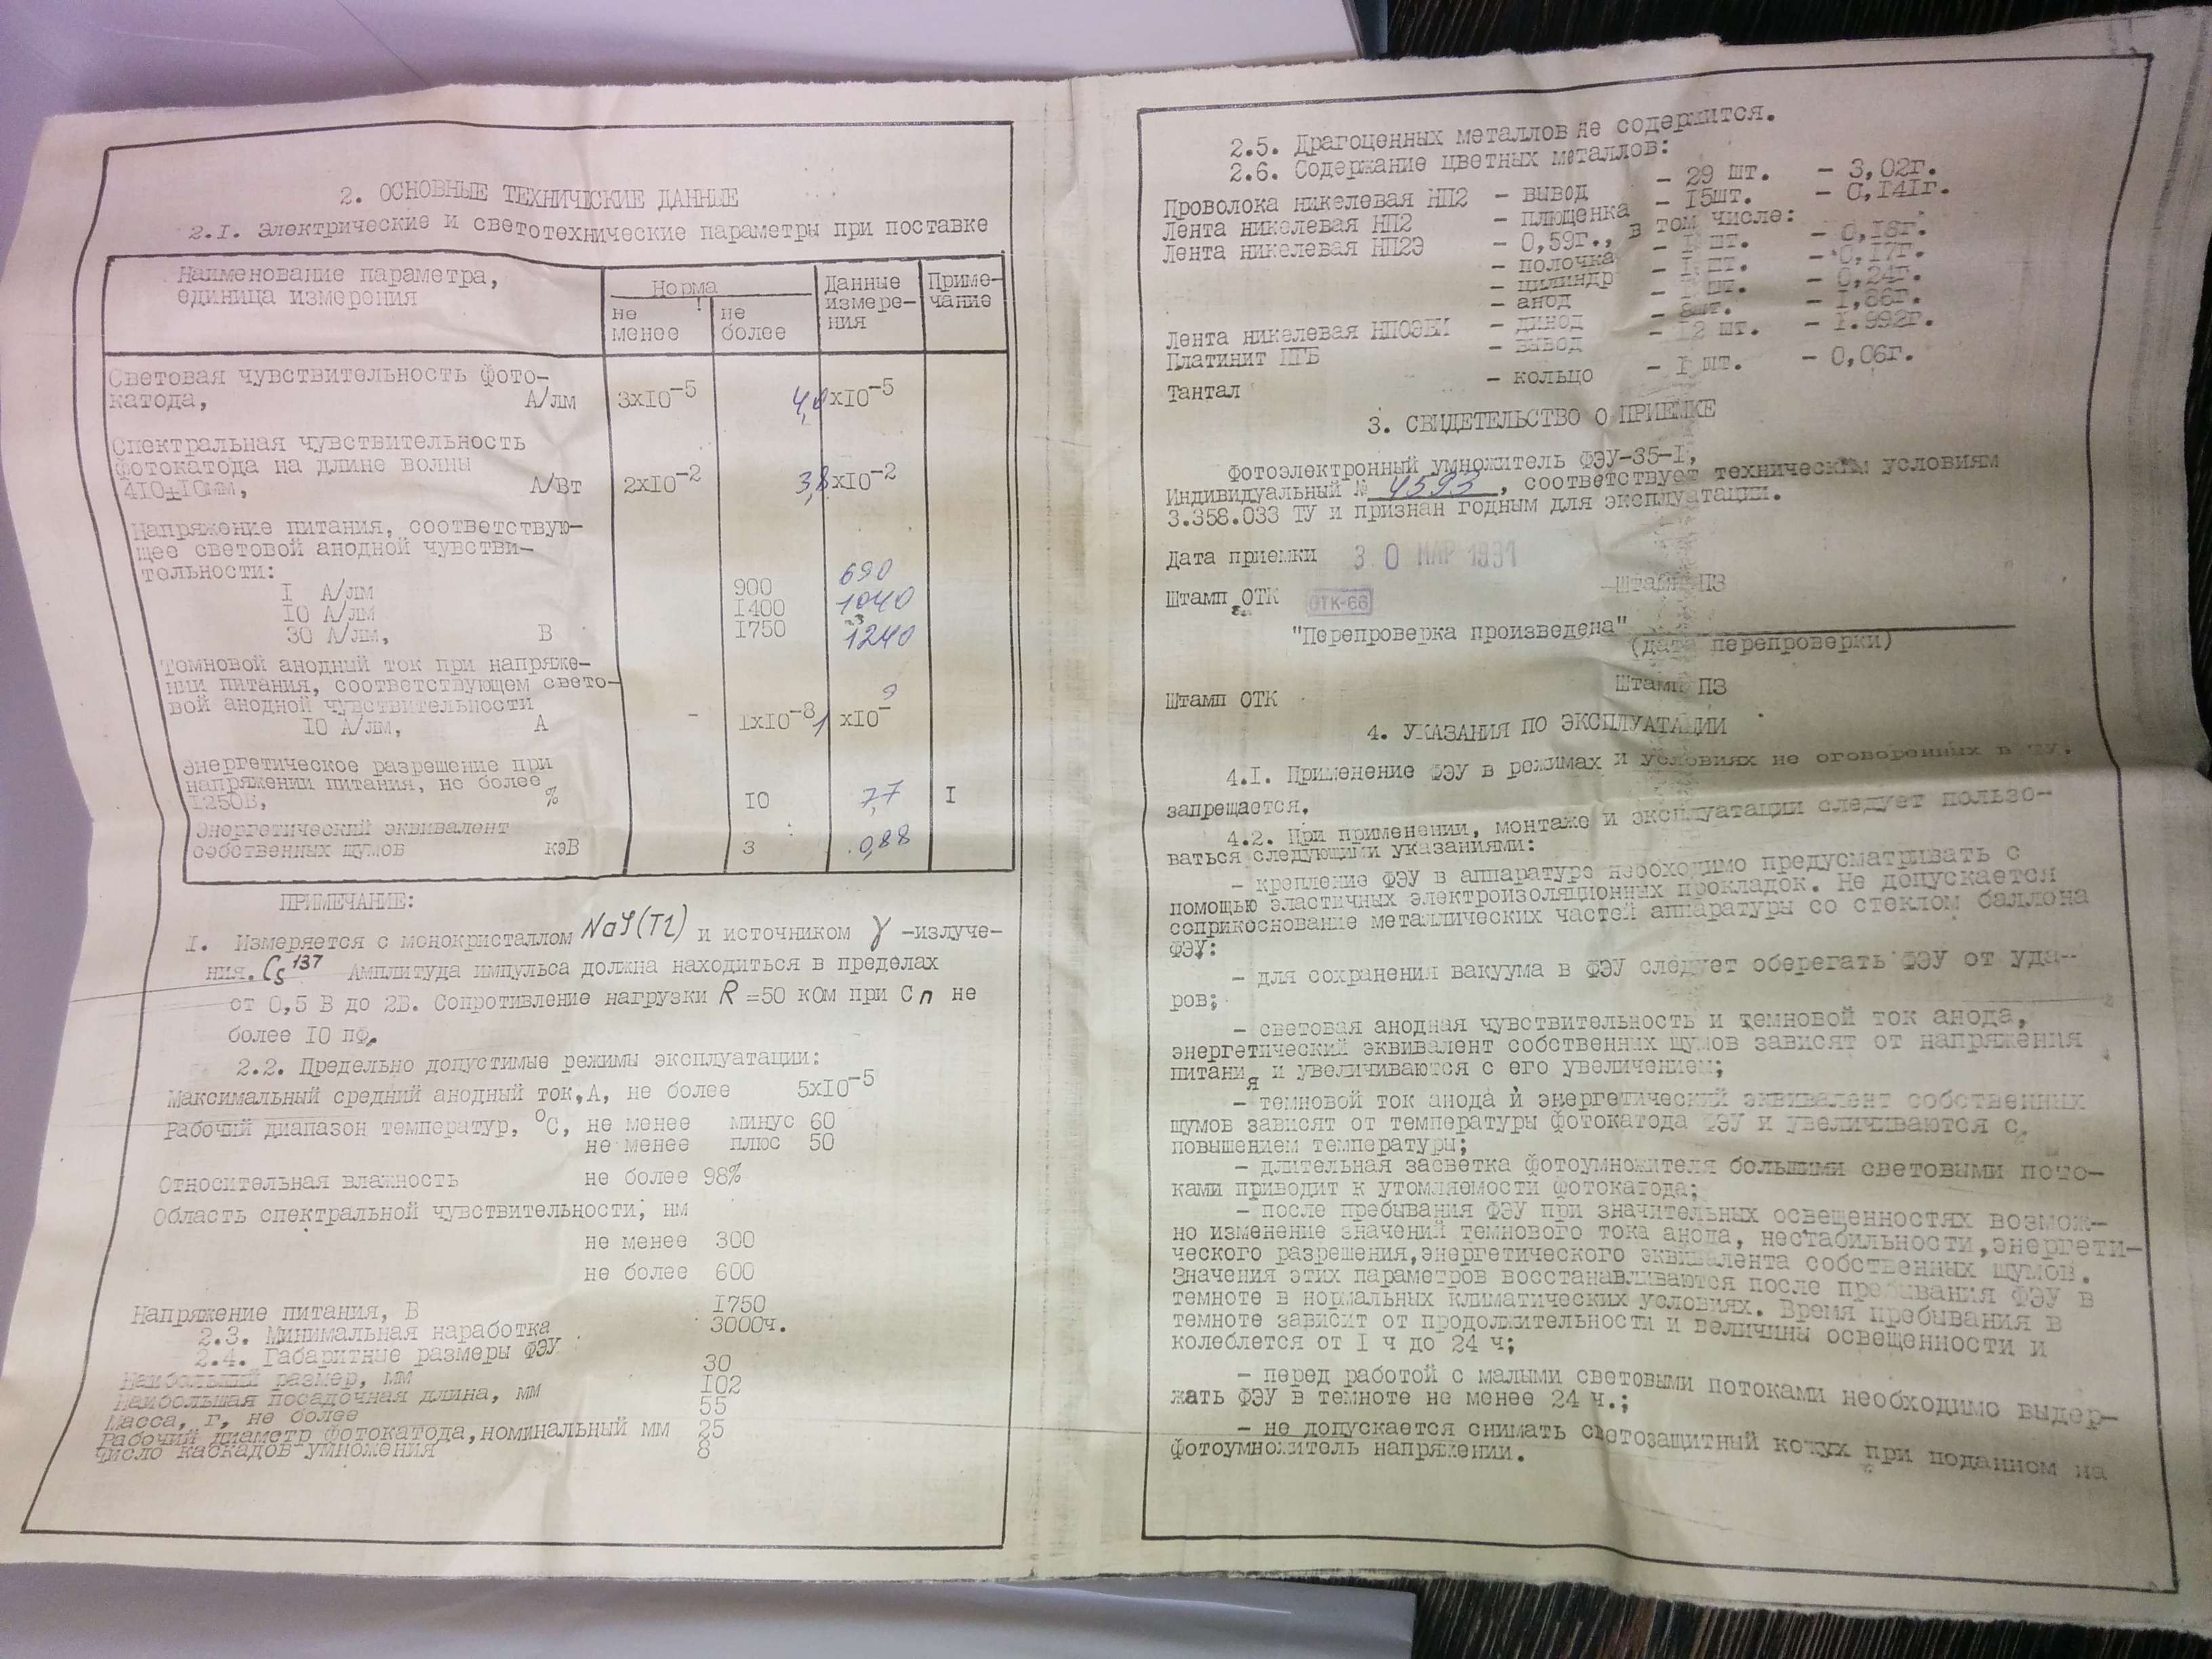 2. ОСНОВНЫЕ ТЕХНИЧЕСКИЕ ДАННЫЕ
2.I. Электрические и светотехнические параметры при поставке
Наименование параметра, единица измерения
Норма
не менее
не более
Данные измере-
ния
Приме-
чание
Световая чувствительность фото-
катода, А/лм 3x10-5 4,0x10-5
Спектральная чувствительность
фотокатода на длине волны
410±10мм, А/Вт 2x10-2 3,8x10-2
Напряжение питания, соответствую-
щее световой анодной чувстви-
тельности:
I А/лм 900 690
10 А/лм 1400 1040
30 А/лм, В 1750 1240
Темновой анодный ток при напряже-
нии питания, соответствующем свето-
вой анодной чувствительности
10 А/лм, А - 1x10-8 1 x10-9
Энергетическое разрешение при
напряжении питания, не более
1250В, % 10 7,7 I
Энергетический эквивалент
собственных шумов кэВ 3 0,88
ПРИМЕЧАНИЕ:
I. Измеряется с монокристаллом NaJ(Tl) и источником γ -излуче-
ния. Cs137 Амплитуда импульса должна находиться в пределах
от 0,5 В до 2В. Сопротивление нагрузки R =50 кОм при Сп не
более 10 пф.
2.2. Предельно допустимые режимы эксплуатации:
Максимальный средний анодный ток,А, не более 5x10-5
Рабочий диапазон температур, °С, не менее минус 60
не менее плюс 50
Относительная влажность не более 98%
Область спектральной чувствительности, нм
не менее 300
не более 600
Напряжение питания, В 1750
2.3. Минимальная наработка 3000ч.
2.4. Габаритные размеры ФЭУ
Наибольший размер, мм 30
Наибольшая посадочная длина, мм 102
Масса, г, не более 55
Рабочий диаметр фотокатода,номинальный мм 25
Число каскадов умножения 8
2.5. Драгоценных металлов не содержится.
2.6. Содержание цветных металлов:
Проволока никелевая НП2 - вывод - 29 шт. - 3,02г.
Лента никелевая НП2 - площенка - 15шт. - 0,141г.
Лента никелевая НП2Э - 0,59г., в том числе:
- полочка - 1 шт. - 0,18г.
- цилиндр - 1 шт. - 0,17г.
- анод - 1 шт. - 0,24г.
Лента никелевая - динод - 8шт. - 1,86г.
Платинит - вывод - 12 шт. - 1.992г.
Тантал - кольцо - 1 шт. - 0,06г.
3. СВИДЕТЕЛЬСТВО О ПРИЕМКЕ
Фотоэлектронный умножитель ФЭУ-35-I,
Индивидуальный № 4593, соответствует техническим условиям
3.358.033 ТУ и признан годным для эксплуатации.
Дата приемки 30 МАР 1991
Штамп ОТК ОТК-66 Штамп ПЗ
"Перепроверка произведена"
(дата перепроверки)
Штамп ОТК Штамп ПЗ
4. УКАЗАНИЯ ПО ЭКСПЛУАТАЦИИ
4.I. Применение ФЭУ в режимах и условиях не оговоренных в ТУ,
запрещается.
4.2. При применении, монтаже и эксплуатации следует пользо-
ваться следующими указаниями:
- крепление ФЭУ в аппаратуре необходимо предусматривать с
помощью эластичных электроизоляционных прокладок. Не допускается
соприкоснование металлических частей аппаратуры со стеклом баллона
ФЭУ:
- для сохранения вакуума в ФЭУ следует оберегать ФЭУ от уда-
ров;
- световая анодная чувствительность и темновой ток анода,
энергетический эквивалент собственных шумов зависят от напряжения
питания и увеличиваются с его увеличением;
- темновой ток анода и энергетический эквивалент собственных
шумов зависят от температуры фотокатода ФЭУ и увеличиваются с
повышением температуры;
- длительная засветка фотоумножителя большими световыми пото-
ками приводит к утомляемости фотокатода;
- после пребывания ФЭУ при значительных освещенностях возмож-
но изменение значений темнового тока анода, нестабильности,энергети-
ческого разрешения,энергетического эквивалента собственных шумов.
Значения этих параметров восстанавливаются после пребывания ФЭУ в
темноте в нормальных климатических условиях. Время пребывания в
темноте зависит от продолжительности и величины освещенности и
колеблется от I ч до 24 ч;
- перед работой с малыми световыми потоками необходимо выдер-
жать ФЭУ в темноте не менее 24 ч.;
- не допускается снимать светозащитный кожух при поданном на
фотоумножитель напряжении.